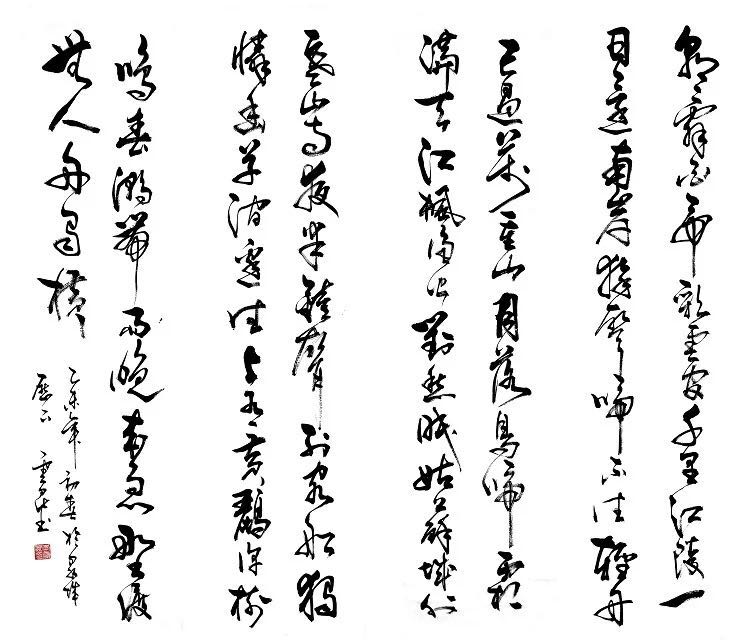 朝辭白帝彩雲間千里江陵一
日還兩岸猿聲啼不住輕舟
已過萬重山月落烏啼霜
滿天江楓漁火對愁眠姑蘇城外
寒山寺夜半鐘聲到客船獨
憐幽草澗邊生上有黃鸝深樹
鳴春潮帶雨晚來急野渡
無人舟自橫
乙未年初春於泉城
歷下